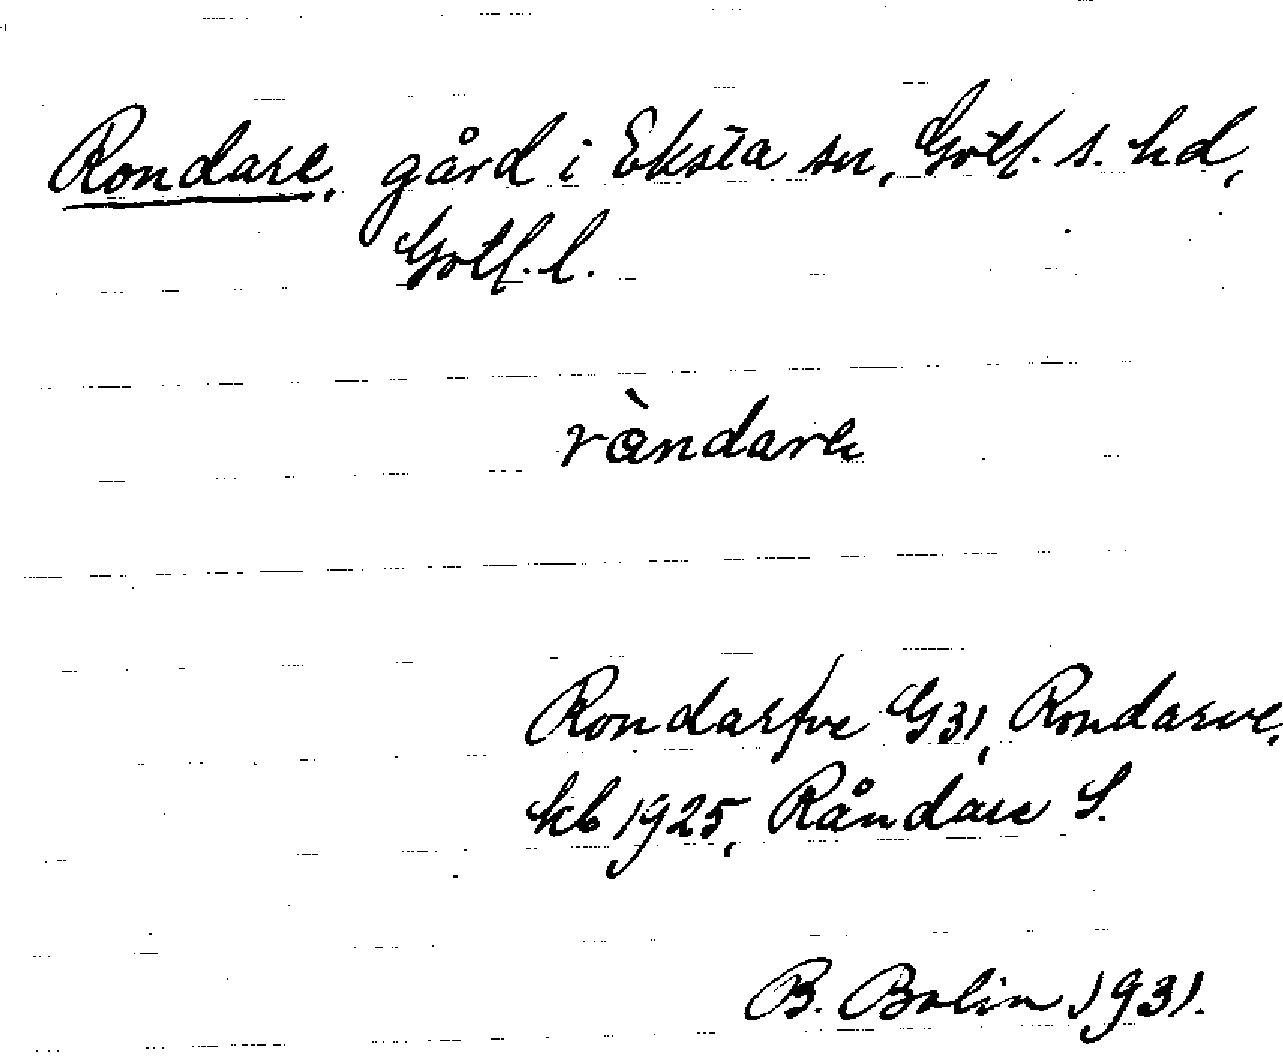 Rondare, gård i Eksta sn, Gotl. s. hd,
Gotl. l.
ràndare
Rondarfve G31, Rondarve
kb 1925, Råndare S.
B. Bolin 1931.